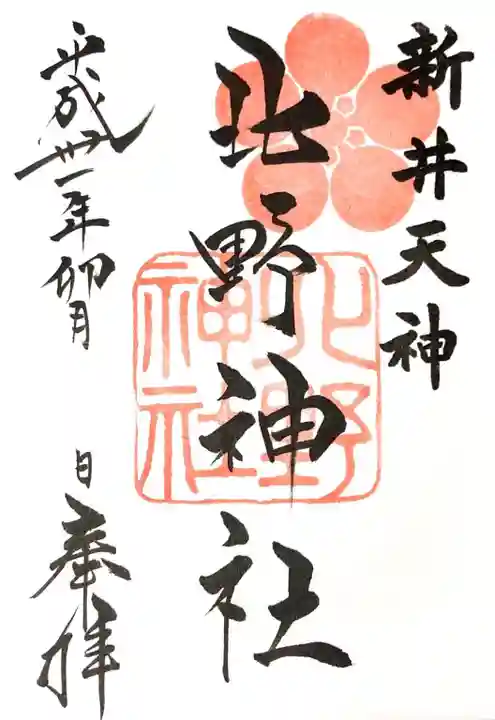 新井天神
北野神社
平成卅一年卯月
日
奉拝
北野
神社